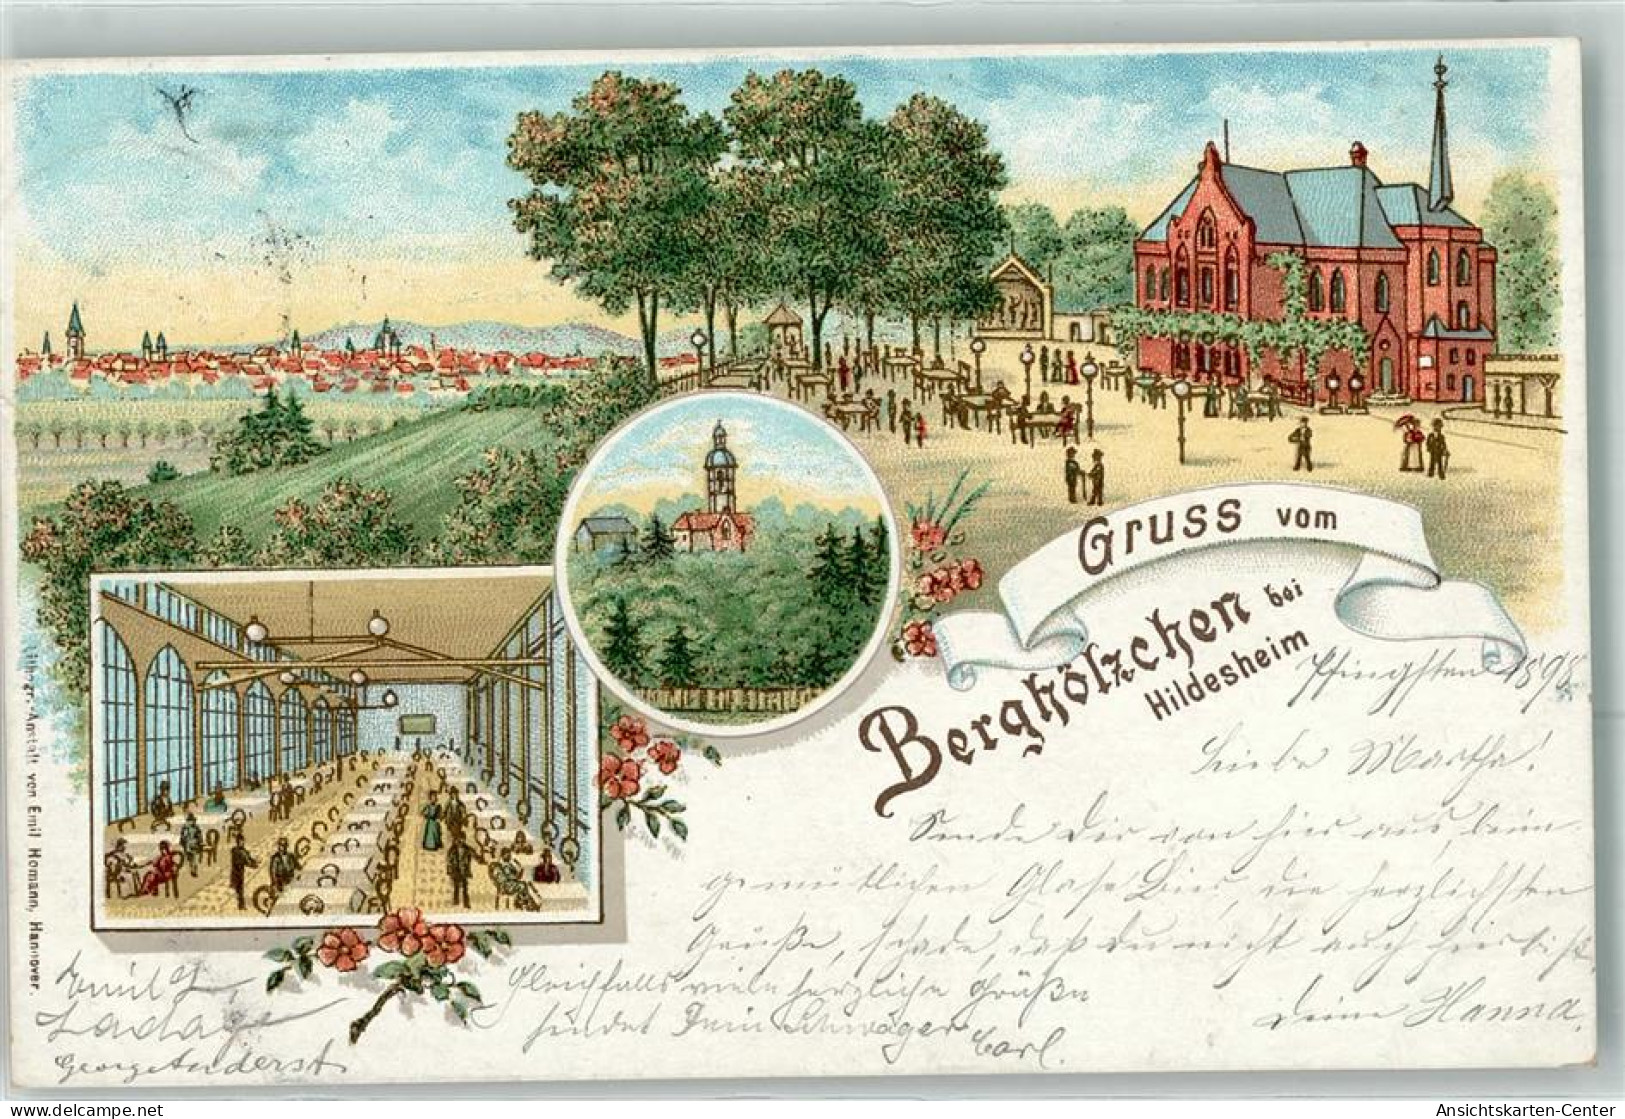 Gruss vom
Berghölzchen bei
Hildesheim
Pfingsten 1898
Liebe Martha!
Sende Dir von hier aus, beim
gemütlichen Glase Bier, die herzlichsten
Grüße, schade, daß Du nicht auch hier bist.
Deine Hanna.
Gleichfalls viele herzliche Grüße
sendet Dein Schwager
Carl.
Emil
Ladage
Georg Anderst
Lithogr. Anstalt von Emil Homann, Hannover.
delcampe.net
Ansichtskarten-Center